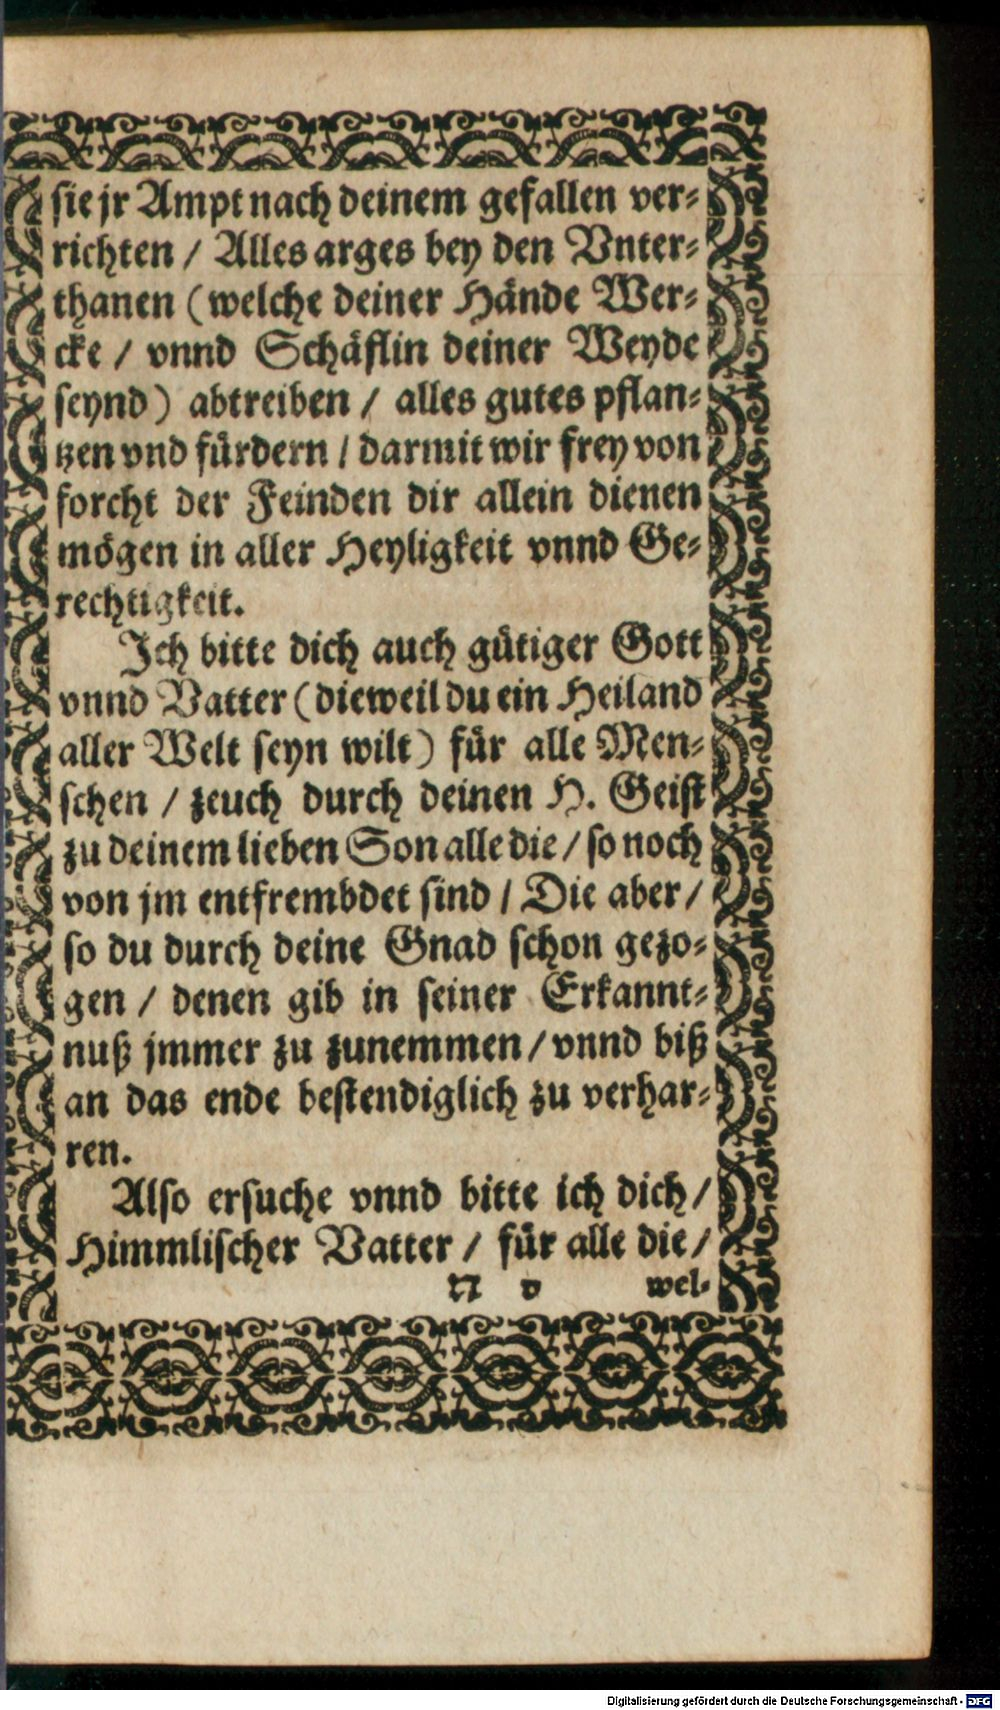 sie jr Ampt nach deinem gefallen ver-
richten / Alles arges bey den Vnter-
thanen (welche deiner Hände Wer-
cke / vnnd Schäflin deiner Weyde
seynd) abtreiben / alles gutes pflan-
tzen vnd fürdern / darmit wir frey von
forcht der Feinden dir allein dienen
mögen in aller Heyligkeit vnnd Ge-
rechtigkeit.
Ich bitte dich auch gütiger Gott
vnnd Vatter (dieweil du ein Heiland
aller Welt seyn wilt) für alle Men-
schen / zeuch durch deinen H. Geist
zu deinem lieben Son alle die / so noch
von jm entfrembdet sind / Die aber /
so du durch deine Gnad schon gezo-
gen / denen gib in seiner Erkannt-
nuß jmmer zu zunemmen / vnnd biß
an das ende bestendiglich zu verhar-
ren.
Also ersuche vnnd bitte ich dich /
Himmlischer Vatter / für alle die /
N v wel-
Digitalisierung gefördert durch die Deutsche Forschungsgemeinschaft - DFG